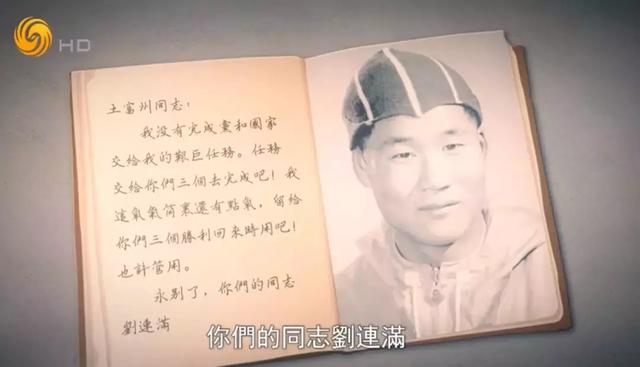 HD
王富州同志:
我没有完成黨和國家
交給我的艱巨任務。任務
交給你們三個去完成吧!我
這氧氣筒裏還有點氣,留給
你們三個勝利回來時用吧!
也許管用。
永别了,你們的同志
劉連滿
你們的同志劉連滿